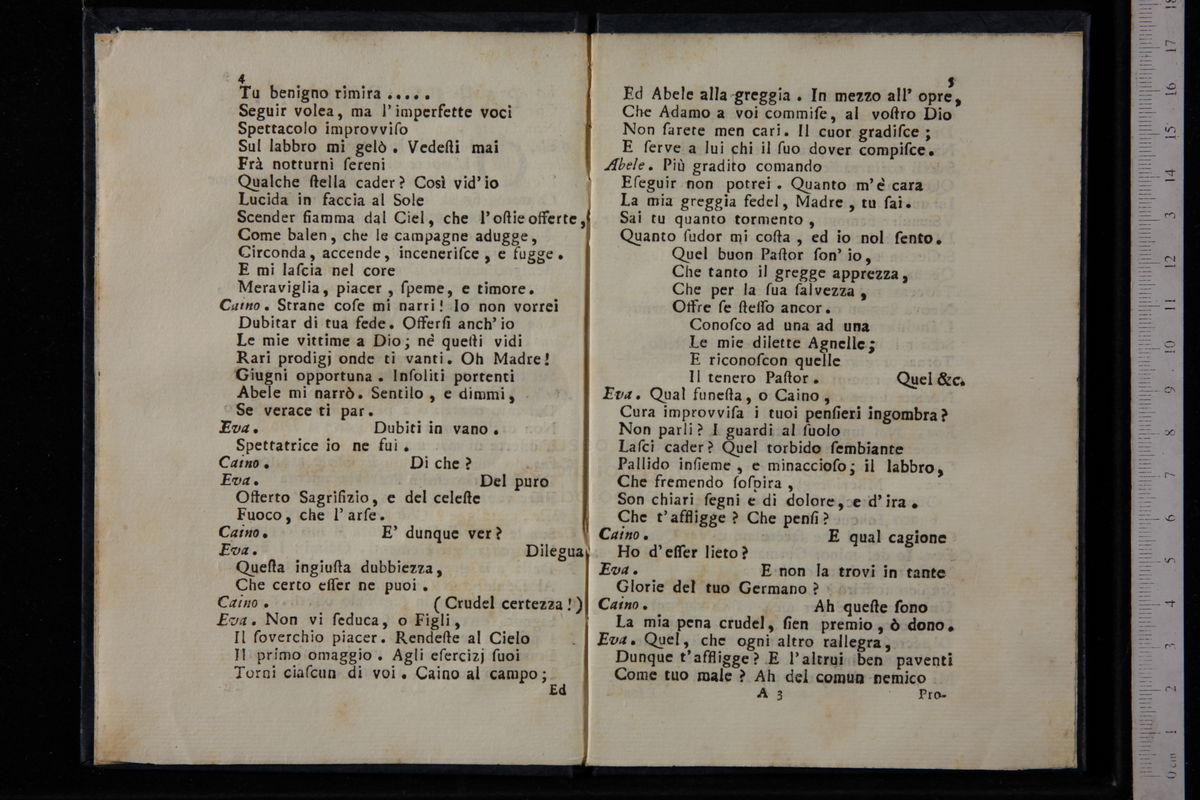 4
Tu benigno rimira . . . . .
Seguir volea, ma l' imperfette voci
Spettacolo improvviſo
Sul labbro mi gelò . Vedeſti mai
Frà notturni ſereni
Qualche ſtella cader? Così vid' io
Lucida in faccia al Sole
Scender fiamma dal Ciel, che l' oſtie offerte,
Come balen, che le campagne adugge,
Circonda, accende, inceneriſce, e fugge.
E mi laſcia nel core
Meraviglia, piacer, ſpeme, e timore.
Caino. Strane coſe mi narri! Io non vorrei
Dubitar di tua fede. Offerſi anch' io
Le mie vittime a Dio; nè queſti vidi
Rari prodigj onde ti vanti. Oh Madre!
Giugni opportuna. Inſoliti portenti
Abele mi narrò. Sentilo, e dimmi,
Se verace ti par.
Eva. Dubiti in vano.
Spettatrice io ne fui.
Caino. Di che?
Eva. Del puro
Offerto Sagrifizio, e del celeſte
Fuoco, che l' arſe.
Caino. E' dunque ver?
Eva. Dilegua
Queſta ingiuſta dubbiezza,
Che certo eſſer ne puoi.
Caino. (Crudel certezza!)
Eva. Non vi ſeduca, o Figli,
Il ſoverchio piacer. Rendeſte al Cielo
Il primo omaggio. Agli eſercizj ſuoi
Torni ciaſcun di voi. Caino al campo;
Ed
5
Ed Abele alla greggia. In mezzo all' opre,
Che Adamo a voi commiſe, al voſtro Dio
Non ſarete men cari. Il cuor gradiſce;
E ſerve a lui chi il ſuo dover compiſce.
Abele. Più gradito comando
Eſeguir non potrei. Quanto m' è cara
La mia greggia fedel, Madre, tu ſai.
Sai tu quanto tormento,
Quanto ſudor mi coſta, ed io nol ſento.
Quel buon Paſtor ſon' io,
Che tanto il gregge apprezza,
Che per la ſua ſalvezza,
Offre ſe ſteſſo ancor.
Conoſco ad una ad una
Le mie dilette Agnelle;
E riconoſcon quelle
Il tenero Paſtor. Quel &c.
Eva. Qual funeſta, o Caino,
Cura improvviſa i tuoi penſieri ingombra?
Non parli? I guardi al ſuolo
Laſci cader? Quel torbido ſembiante
Pallido inſieme, e minaccioſo; il labbro,
Che fremendo ſoſpira,
Son chiari ſegni e di dolore, e d' ira.
Che t' affligge? Che penſi?
Caino. E qual cagione
Ho d' eſſer lieto?
Eva. E non la trovi in tante
Glorie del tuo Germano?
Caino. Ah queſte ſono
La mia pena crudel, ſien premio, ò dono.
Eva. Quel, che ogni altro rallegra,
Dunque t' affligge? E l' altrui ben paventi
Come tuo male? Ah del comun nemico
A 3 Pro-
0 cm 1 2 3 4 5 6 7 8 9 10 11 12 13 14 15 16 17 18